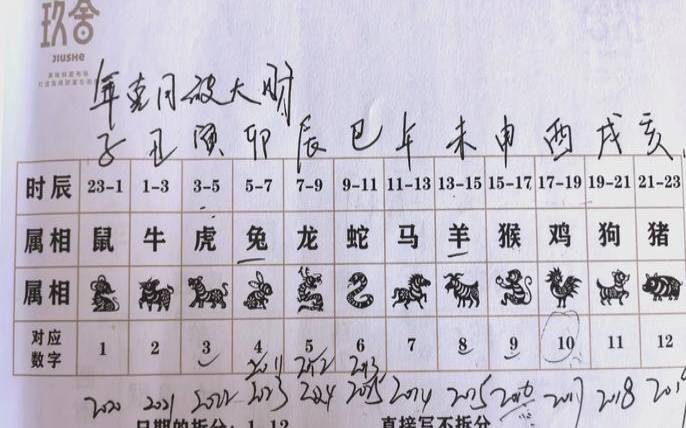 玖舍
JIUSHE
年克月破大财
子 丑 寅 卯 辰 巳 午 未 申 酉 戌 亥
时辰 23-1 1-3 3-5 5-7 7-9 9-11 11-13 13-15 15-17 17-19 19-21 21-23
属相 鼠 牛 虎 兔 龙 蛇 马 羊 猴 鸡 狗 猪
属相
对应数字 1 2 3 4 5 6 7 8 9 10 11 12
2011 2012 2013
2020 2021 2022 2023 2024 2025 2014 2015 2016 2017 2018 2019
日期的拆分: 1-12 直接写不拆分